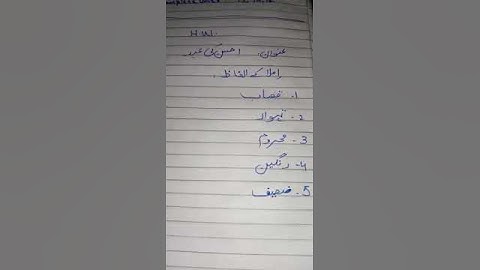 H.W.
عنوان. احسن کی عید
املا کے الفاظ.
1. قصاب
2. تہوار
3. محروم
4. رنگین
5. ضعیف